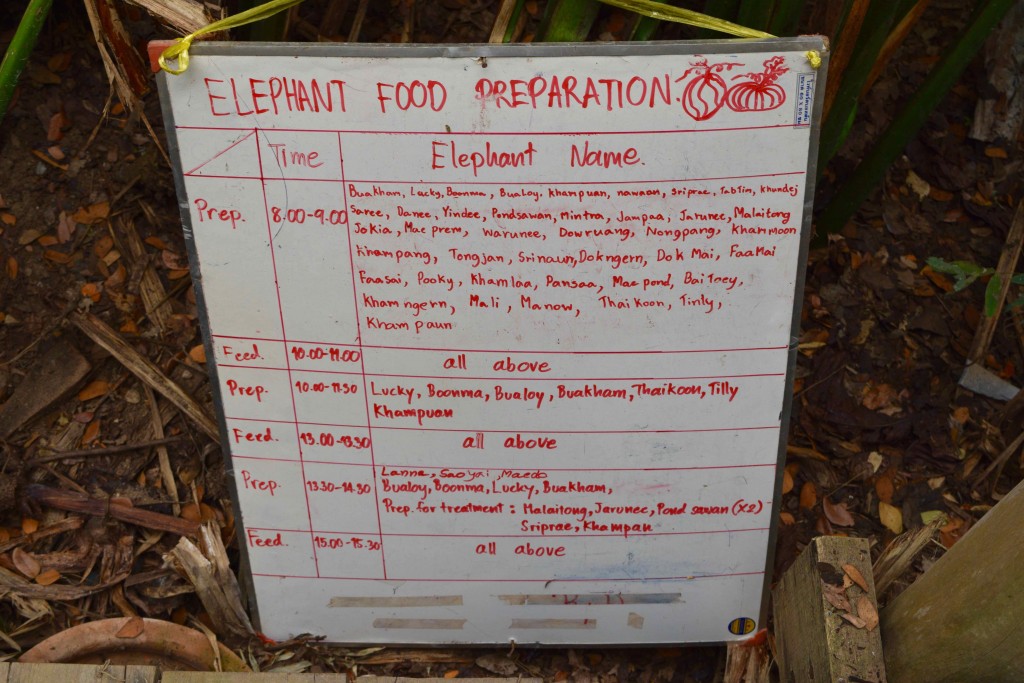 ELEPHANT FOOD PREPARATION.
Time Elephant Name.
Prep. 8.00-9.00 Buakham, Lucky, Boonma, Bualoy, Khampuan, nawaan, Sriprae, Tabtim, Khundej
Saree, Danee, Yindee, Pondsawan, Mintra, Jampaa, Jarunee, Malaitong
Jokia, Mae prem, Warunee, Dowruang, Nongpang, Khammoon
Khampang, Tongjan, Srinaun, Dokngern, Dok Mai, FaaMai
Faasai, Pooky, Khamlaa, Pansaa, Mae pond, Bai Toey,
Kham ngern, Mali, Manow, Thai Koon, Tinly,
Kham paun
Feed. 10.00-11.00 all above
Prep. 10.00-11.30 Lucky, Boonma, Bualoy, Buakham, Thaikoon, Tilly
Khampuan
Feed. 13.00-13.30 all above
Prep. 13.30-14.30 Lanna, Sao yai, Maedo
Bualoy, Boonma, Lucky, Buakham,
Prep. for treatment : Malaitong, Jarunee, Pond sawan (x2)
Sriprae, Khampan
Feed. 15.00-15.30 all above